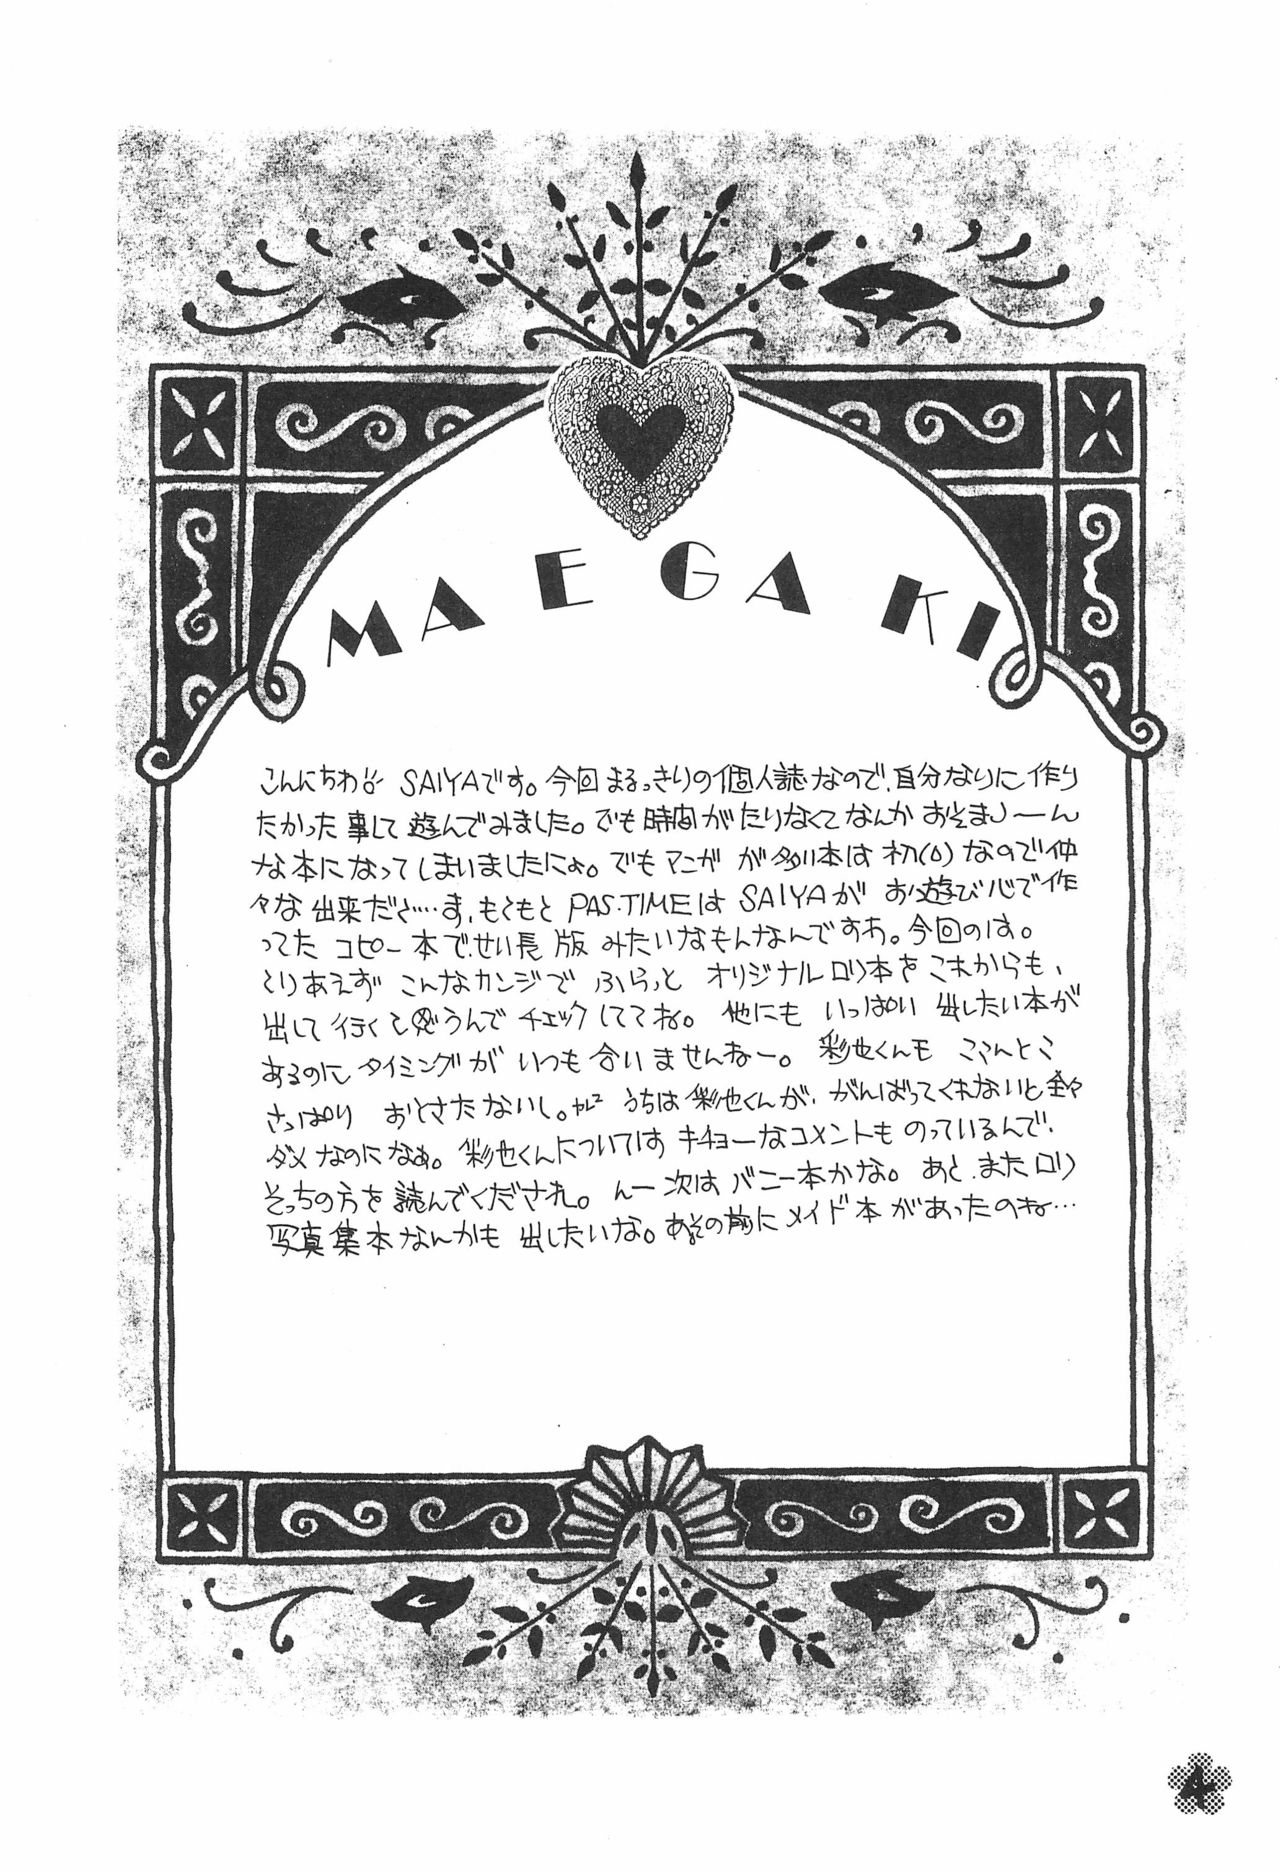 MAEGAKI
こんにちわ SAIYAです。今回まるっきりの個人誌なので、自分なりに作り
たかった事して遊んでみました。でも時間がたりなくてなんか おそまつ〜ん
な本になってしまいましたにょ。でもマンガ が多い本は初(0)なので仲
々な出来だと……ま、もともと PAS.TIMEは SAIYAが お遊び心で作
ってた コピー本で、せい長版 みたいなもんなんですわ。今回のは。
とりあえず こんなカンジで ふらっと オリジナルロリ本を これからも、
出して行くと思うんで チェックしててね。他にも いっぱい 出したい本が
あるのに タイミングが いつも合いませんねー。彩也くんも ここんとこ
さっぱり おとさたないし。 うちは 彩也くんが、がんばってくれないと全々
ダメなのになぁ。彩也くんについては キチョーなコメントも のっているんで、
そっちの方を読んでくだされ。んー次は バニー本かな。あと、またロリ
写真集本なんかも 出したいな。あその前にメイド本があったのね…
4